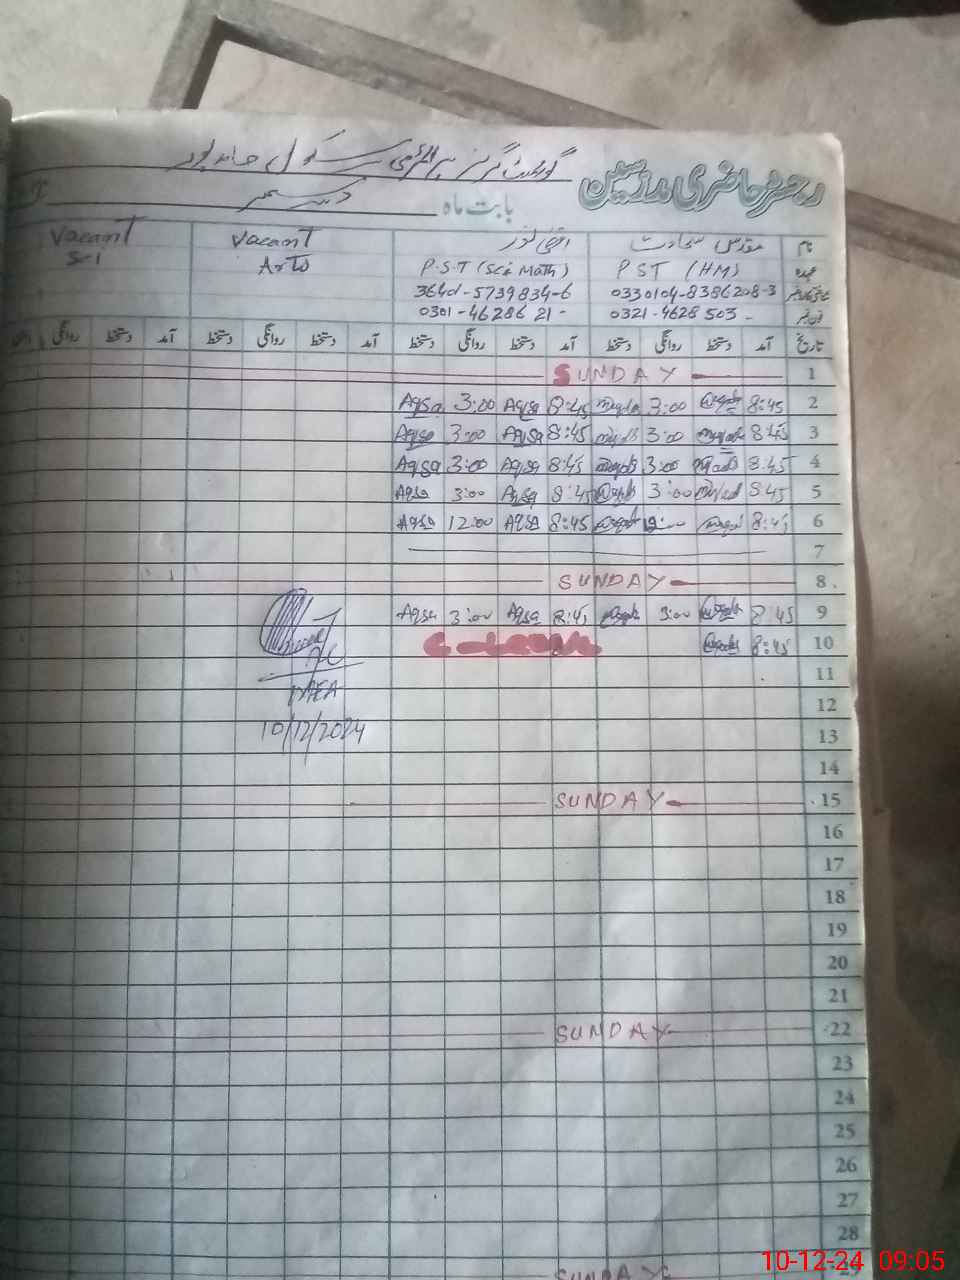 رجسٹر حاضری مدرسین گورنمنٹ گرلز پرائمری سکول حامد پور
بابت ماہ دسمبر
نام مقدس سخاوت اقصیٰ نور Vacant Vacant
عہدہ PST (HM) P.S.T (Sci Math) Arts Sci
0330104-8386208-3 364d-5739834-6
0321-4628503 - 0301-4628621 -
تاریخ آمد دستخط روانگی دستخط آمد دستخط روانگی دستخط آمد دستخط روانگی دستخط آمد دستخط روانگی
1 SUNDAY
2 8:45 3:00 8:45 Aqsa 3:00 Aqsa
3 8:45 3:00 8:45 Aqsa 3:00 Aqsa
4 8:45 3:00 8:45 Aqsa 3:00 Aqsa
5 8:45 3:00 8:45 Aqsa 3:00 Aqsa
6 8:45 12:00 8:45 Aqsa 12:00 Aqsa
7
8 SUNDAY
9 8:45 3:00 8:45 Aqsa 3:00 Aqsa
10 8:45
11
MEA
12
10/12/2024
13
14
15 SUNDAY
16
17
18
19
20
21
22 SUNDAY
23
24
25
26
27
28
29 SUNDAY
10-12-24 09:05